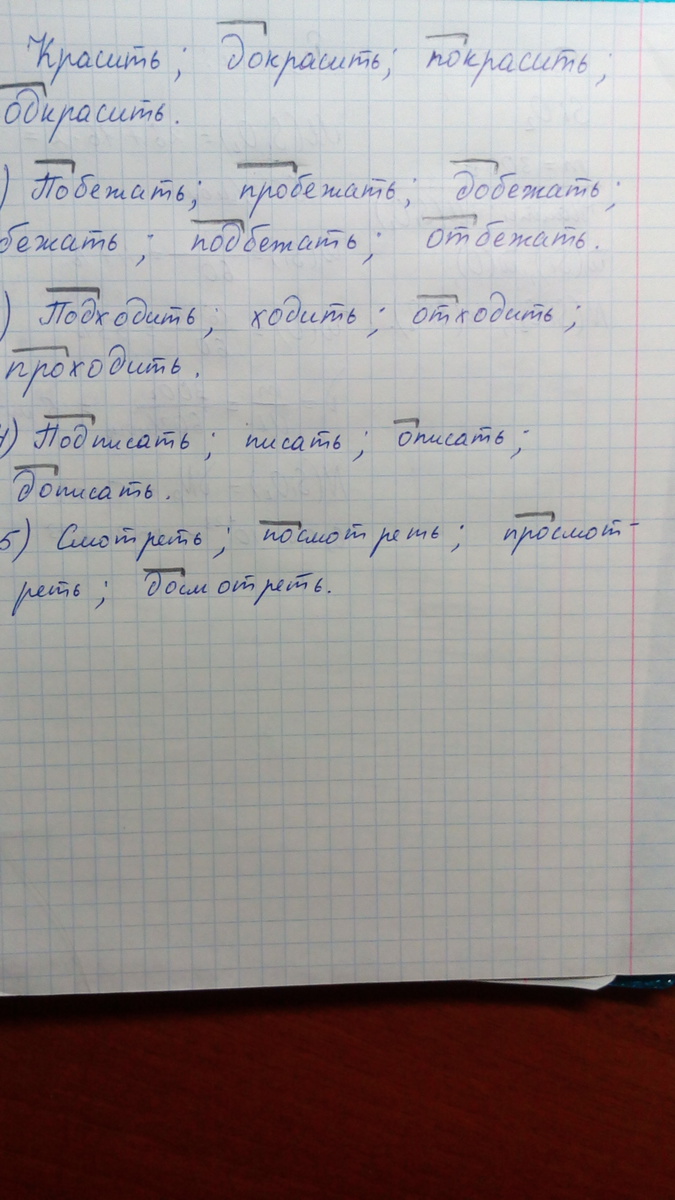 Красить; докрасить; покрасить;
одкрасить.
) Побежать; пробежать; добежать;
бежать; подбежать; отбежать.
) Подходить; ходить; отходить;
проходить.
4) Подписать; писать; описать;
дописать.
5) Смотреть; посмотреть; просмот-
реть; досмотреть.